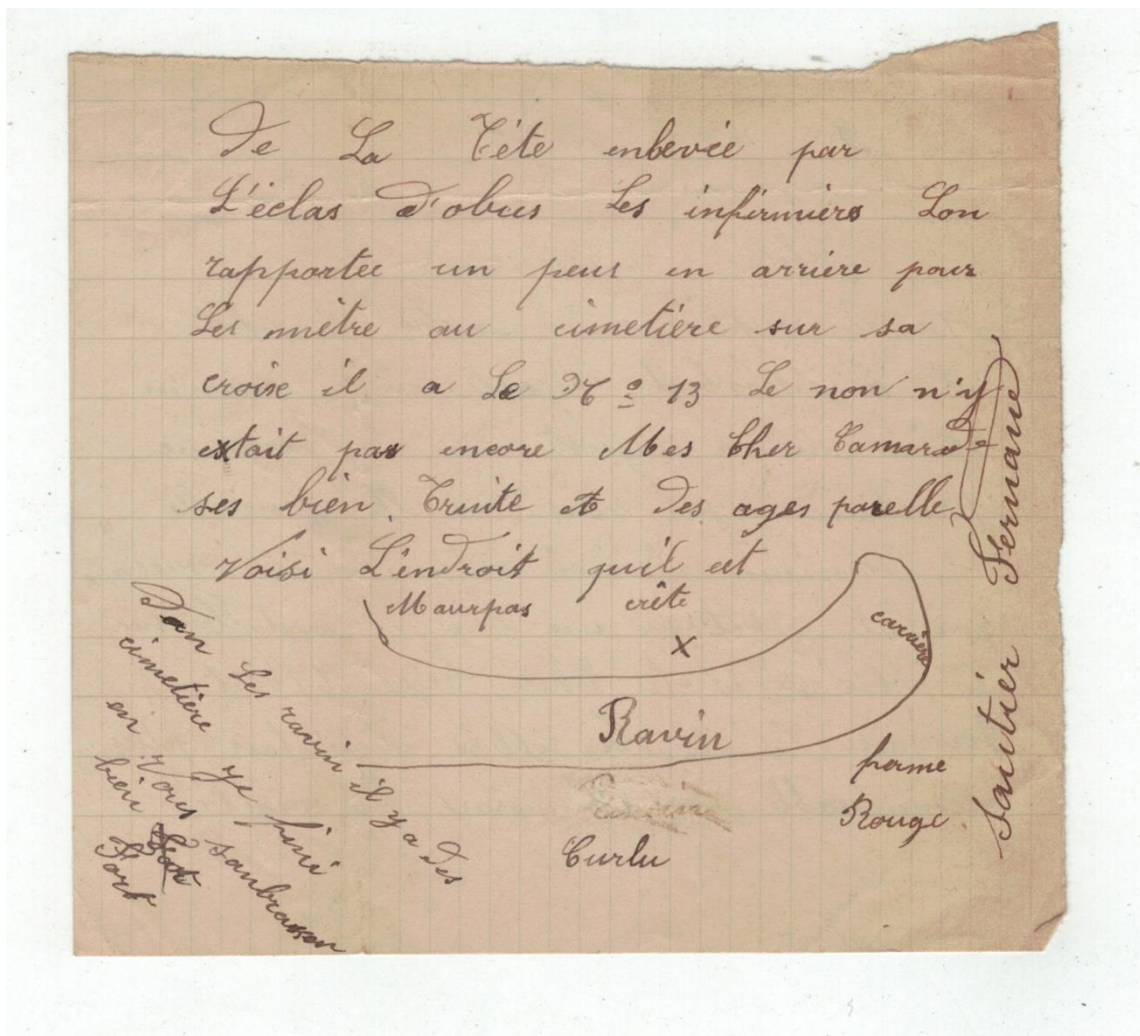 De La Tête enlevée par
L'éclas d'obus Les infirmiers Lon
rapportée un peus en arrière pour
Les mètre au cimetière sur sa
croise il a Le Nº 13 Le non n'y
extait pas encore Mes Cher Camarade
ses bien Triste et Des ages parelle
Voisi L'endroit quil est
Maurpas crête
X
carrière
Ravin
ferme
Rouge
Curlu
Dan Les ravin il y a Des
cimetière Je fini
en Vous sanbrasen
bien
Fort
Sautier Fernand